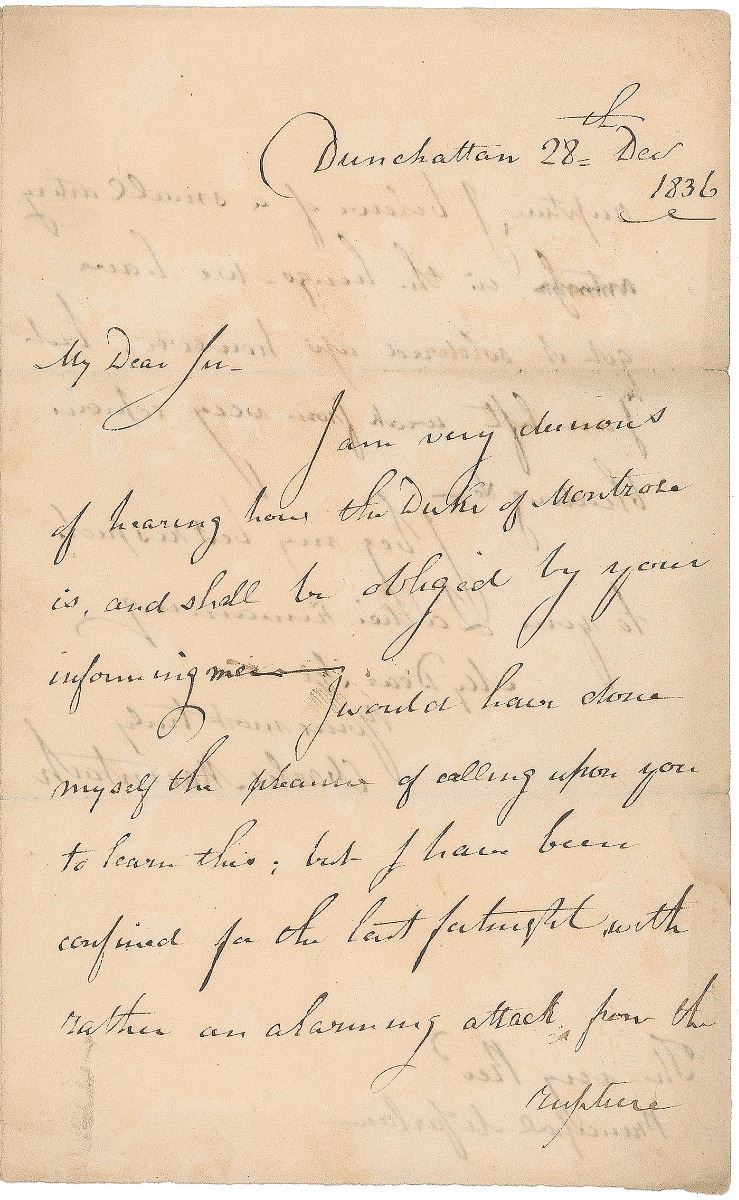 Dunchattan 28th Decr
1836
My Dear Sir -
I am very desirous
of hearing how the Duke of Montrose
is, and shall be obliged by your
informing me — I would have done
myself the pleasure of calling upon you
to learn this; but I have been
confined for the last fortnight with
rather an alarming attack from the
rupture